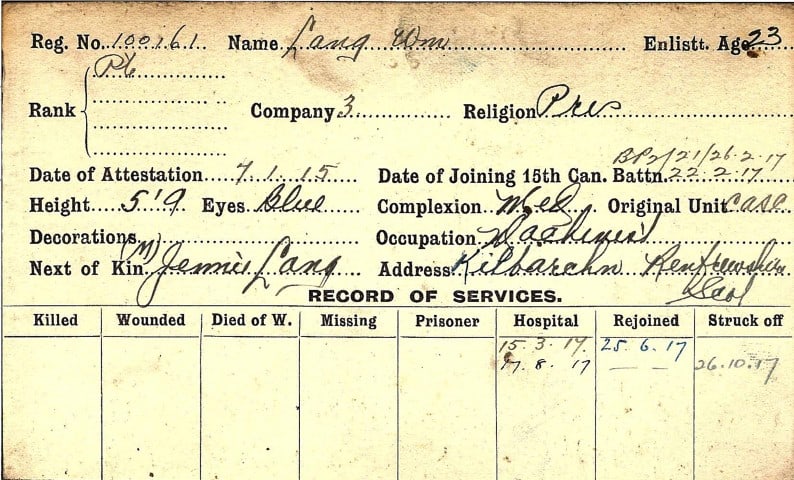 Reg. No. 100161 Name Lang Wm Enlistt. Age 23
Pte
Rank Company 3 Religion Pres
BPO/21/26-2-17
Date of Attestation 7.1.15 Date of Joining 15th Can. Battn. 22.2.17
Height 5'9 Eyes Blue Complexion Med Original Unit CASC
Decorations Occupation Machinist
Next of Kin (M) Jennie Lang Address Kilbarchn Renfrewshire
Scot
RECORD OF SERVICES.
Killed Wounded Died of W. Missing Prisoner Hospital Rejoined Struck off
15.3.17. 25.6.17
17.8.17 — — 26.10.17